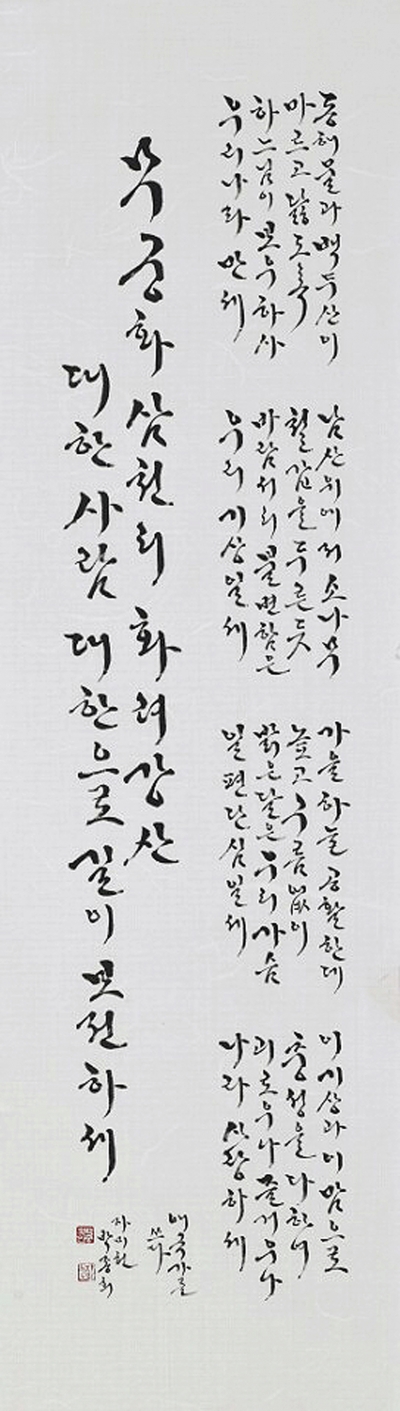 동해물과 백두산이
마르고 닳도록
하느님이 보우하사
우리나라 만세
남산위에 저 소나무
철갑을 두른듯
바람서리 불변함은
우리 기상일세
가을하늘 공활한데
높고 구름없이
밝은달은 우리가슴
일편단심일세
이 기상과 이 맘으로
충성을 다하여
괴로우나 즐거우나
나라 사랑하세
무궁화 삼천리 화려강산
대한사람 대한으로 길이 보전하세
애국가를
쓰다